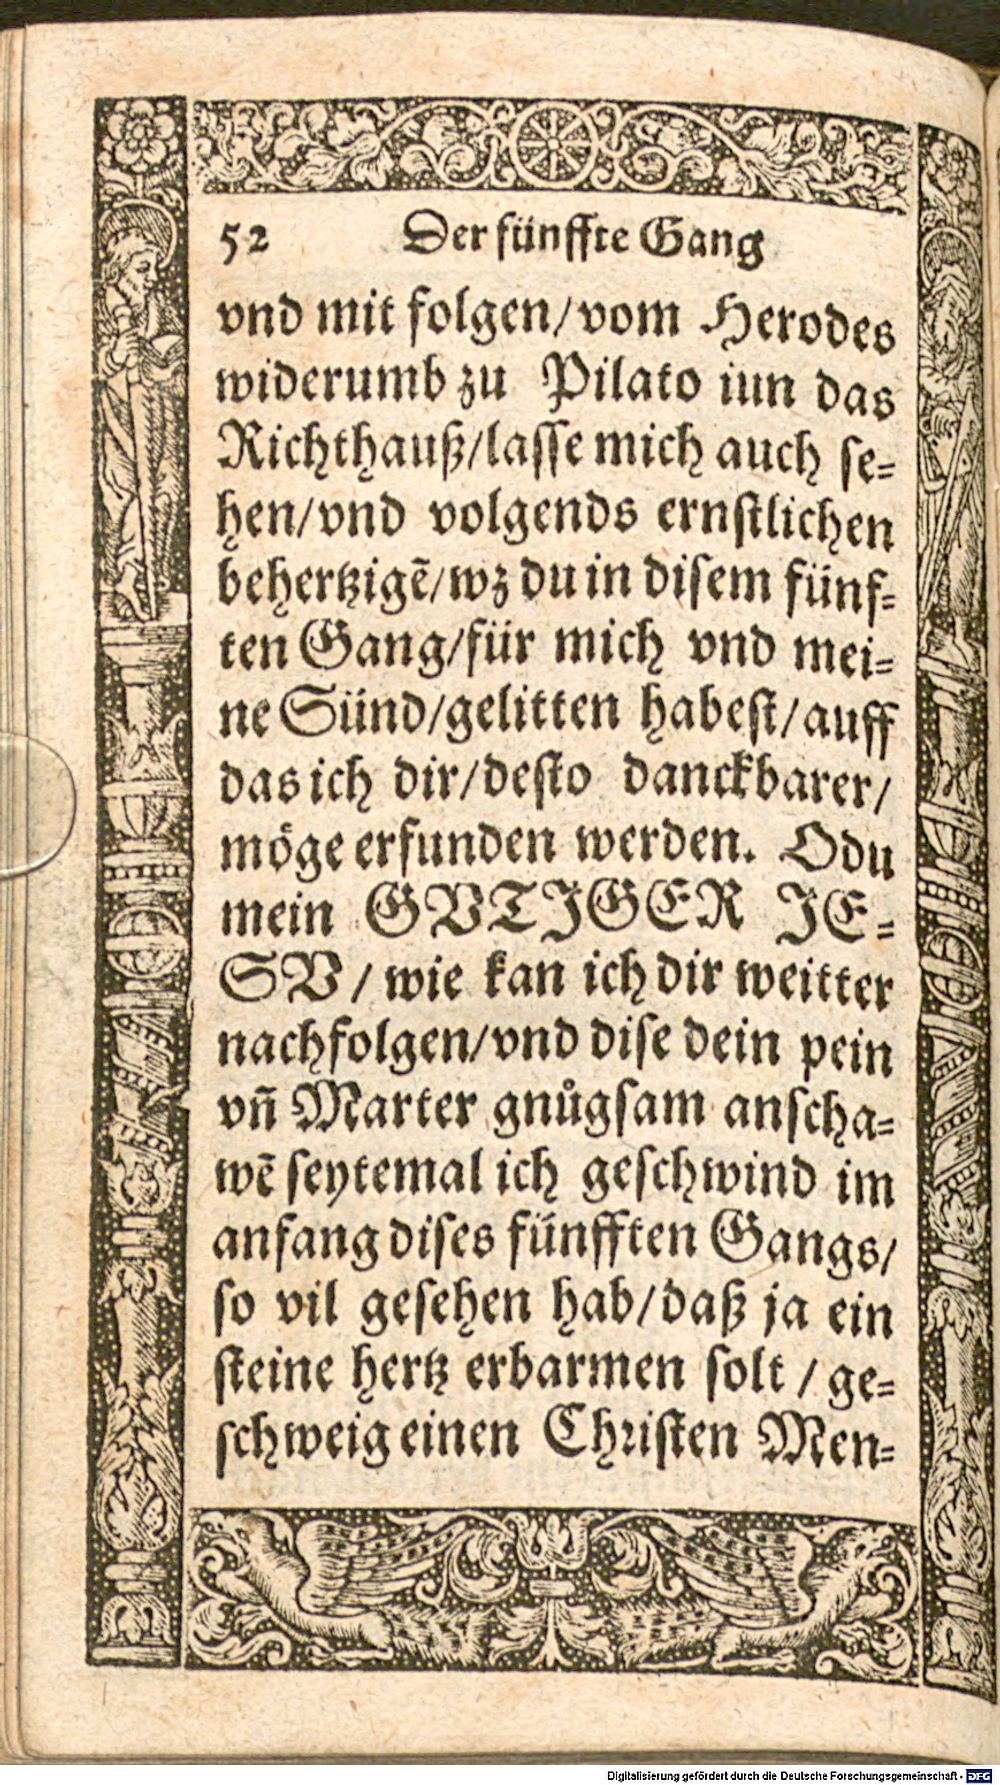 52 Der fünffte Gang
vnd mit folgen/vom Herodes
widerumb zu Pilato iun das
Richthauß/lasse mich auch se-
hen/vnd volgends ernstlichen
behertzigẽ/wz du in disem fünf-
ten Gang/für mich vnd mei-
ne Sünd/gelitten habest/auff
das ich dir/desto danckbarer/
möge erfunden werden. Odu
mein GVTIGER JE-
SV/ wie kan ich dir weitter
nachfolgen/vnd dise dein pein
vñ Marter gnůgsam anscha-
wẽ seytemal ich geschwind im
anfang dises fünfften Gangs/
so vil gesehen hab/daß ja ein
steine hertz erbarmen solt / ge-
schweig einen Christen Men-
Digitalisierung gefördert durch die Deutsche Forschungsgemeinschaft - DFG